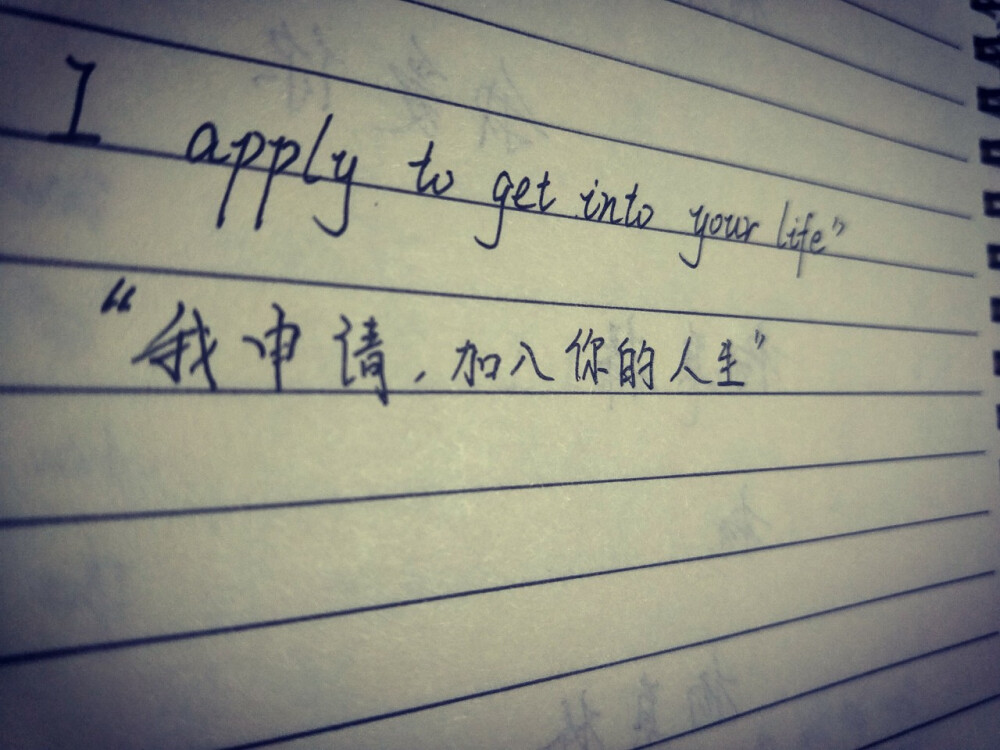 I apply to get into your life”
“我申请,加入你的人生”